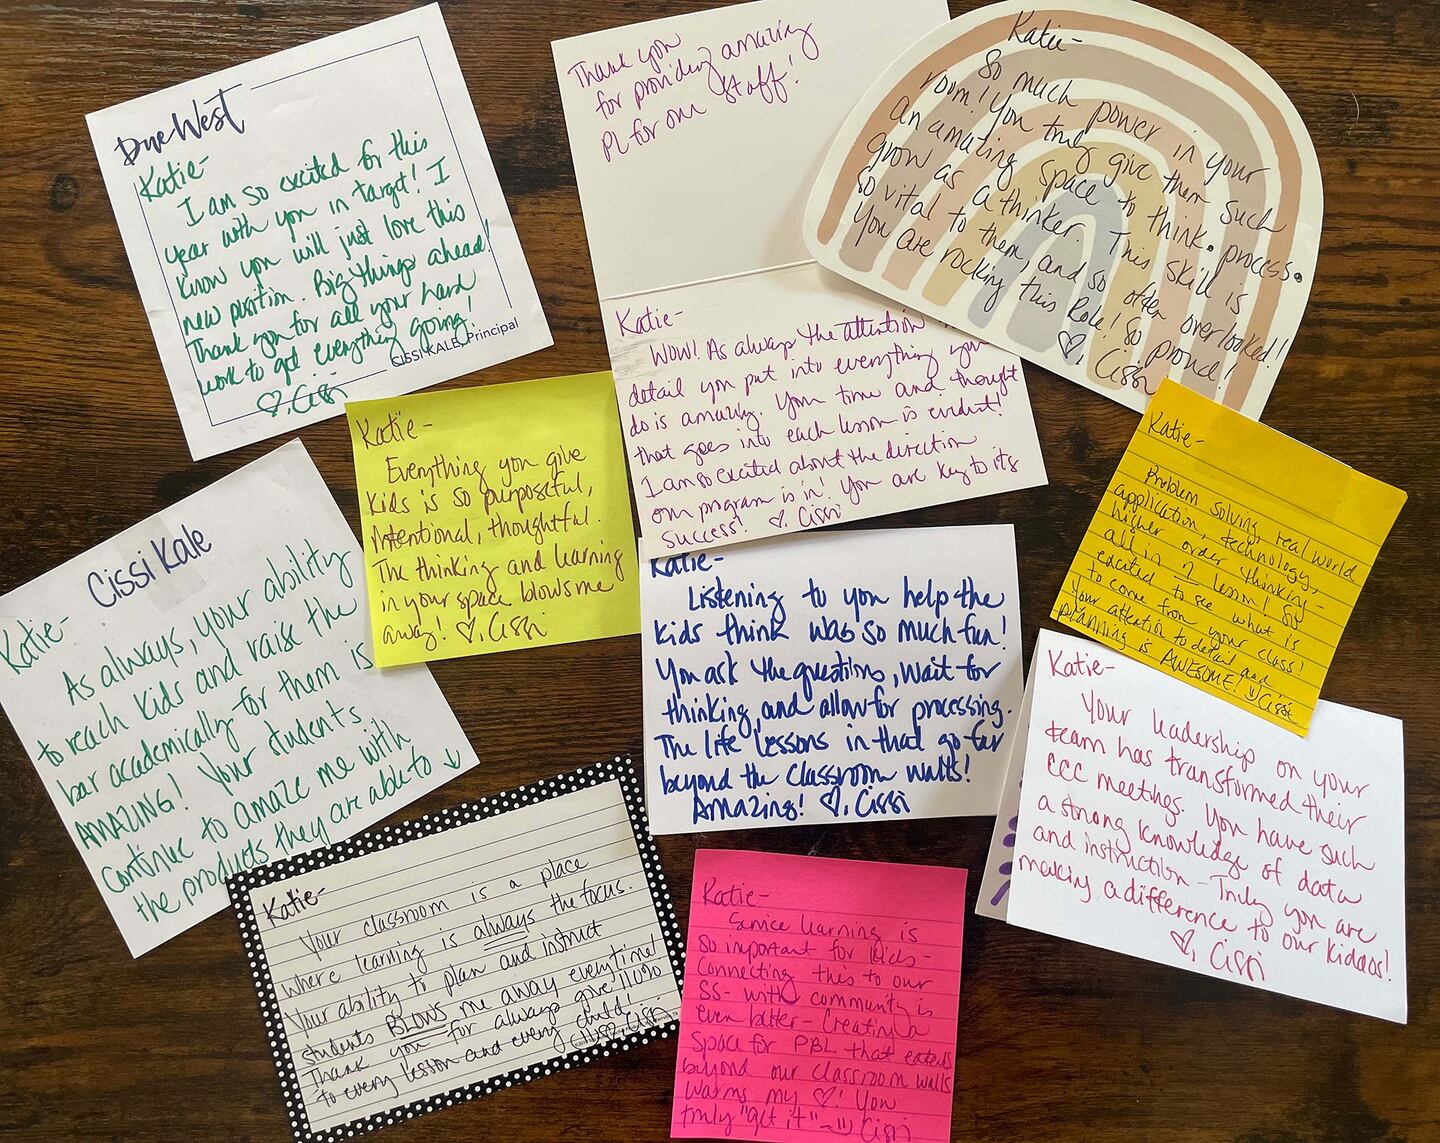 Due West
Katie-
I am so excited for this
year with you in target! I
know you will just love this
new position. Big things ahead!
Thank you for all your hard
work to get everything going!
♡, Cissi
CISSI KALE, Principal
Thank you
for providing amazing
PL for our staff!
Katie-
WOW! As always the attention
detail you put into everything you
do is amazing. Your time and thought
that goes into each lesson is evident!
I am so excited about the direction
our program is in! You are key to its
success! ♡, Cissi
Katie-
So much power in your
room! You truly give them such
an amazing space to think, process,
grow as a thinker. This skill is
so vital to them, and so often overlooked!
You are rocking this Role! So proud!
♡, Cissi
Katie-
Everything you give
kids is so purposeful,
intentional, thoughtful.
The thinking and learning
in your space blows me
away! ♡, Cissi
Katie-
Problem solving, real world
application, technology,
higher order thinking-
all in 1 lesson! So
excited to see what is
to come from your class!
Your attention to detail and
planning is AWESOME! Cissi
Cissi Kale
Katie-
As always, your ability
to reach kids and raise the
bar academically for them is
AMAZING! Your students
continue to amaze me with
the products they are able to ↓
Katie-
Listening to you help the
kids think was so much fun!
You ask the questions, wait for
thinking, and allow for processing.
The life lessons in that go far
beyond the classroom walls!
Amazing! ♡, Cissi
Katie-
Your leadership on your
team has transformed their
CCC meetings. You have such
a strong knowledge of data
and instruction- Truly you are
making a difference to our kiddos!
♡, Cissi
Katie-
Your classroom is a place
where learning is always the focus.
Your ability to plan and instruct
students BLOWS me away everytime!
Thank you for always give 110%
to every lesson and every child!
♡, Cissi
Katie-
Service learning is
so important for kids-
Connecting this to our
SS- with community is
even better- Creating a
space for PBL that extends
beyond our classroom walls
warms my ♡! You
truly "get it"~ Cissi